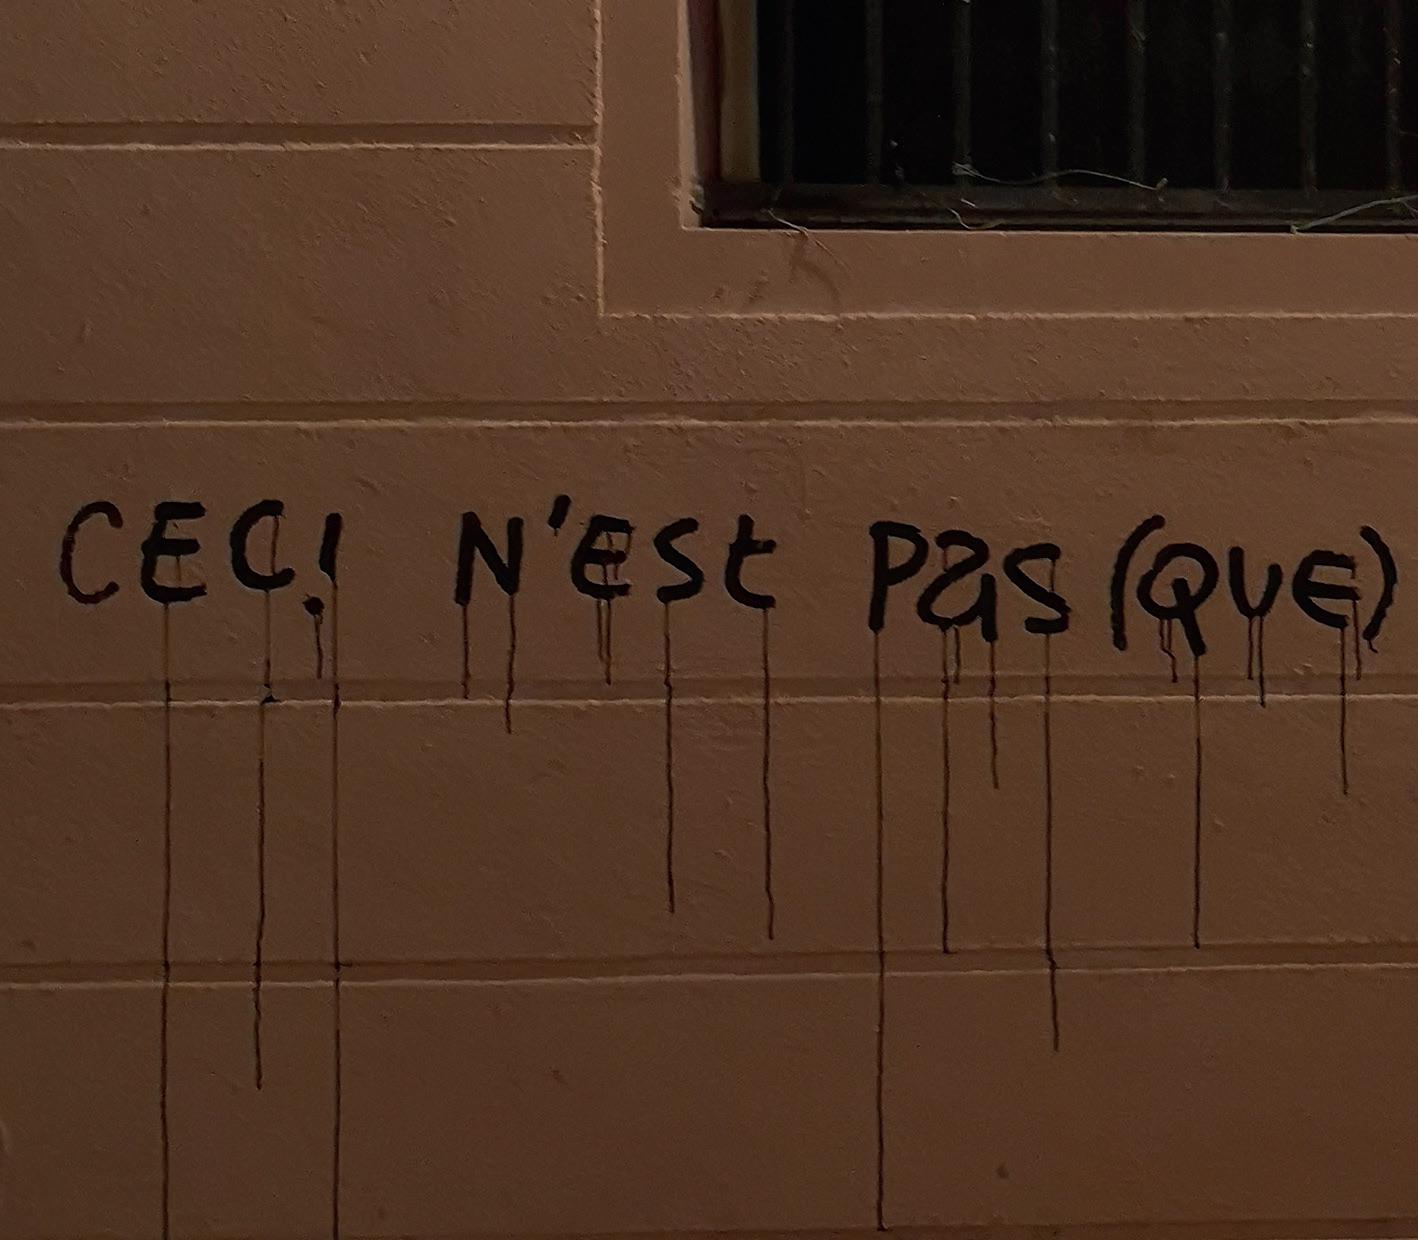 CECI N'ESt PaS (QUE)